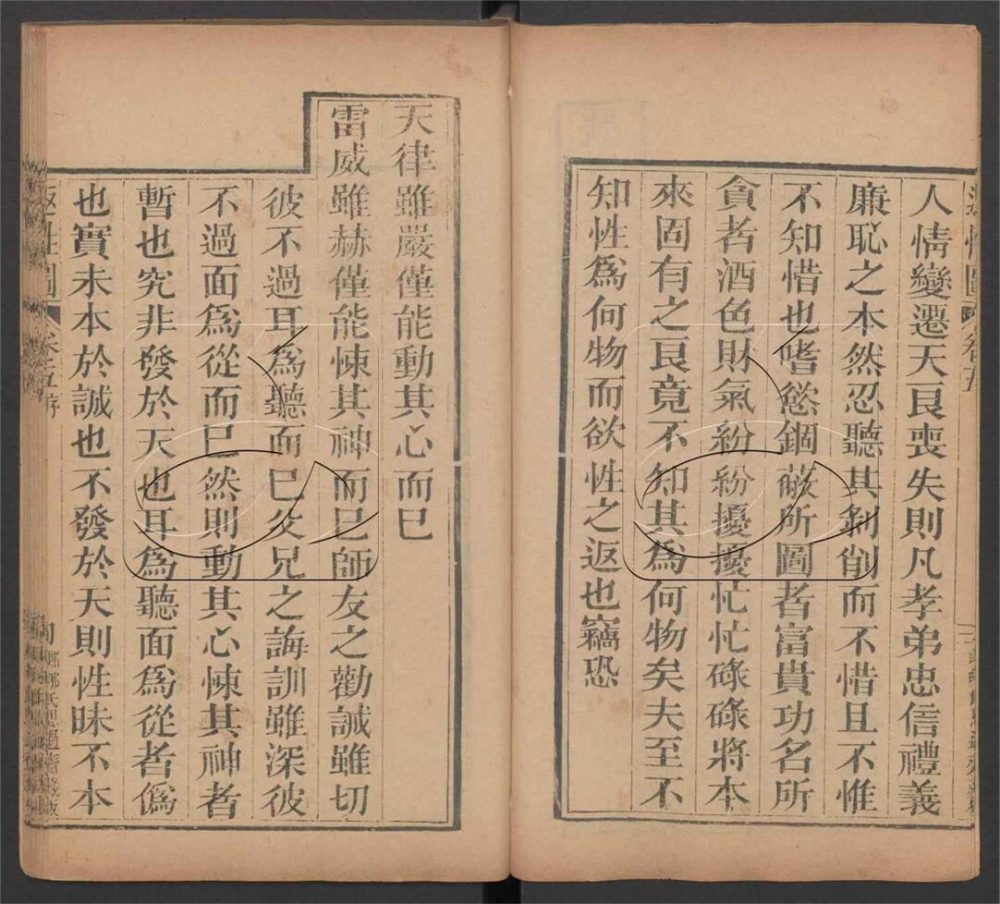 人情變遷天良喪失則凡孝弟忠信禮義
廉恥之本然忍聽其剝削而不惜且不惟
不知惜也嗜慾錮蔽所圖者富貴功名所
貪者酒色財氣紛紛擾擾忙忙碌碌將本
來固有之良竟不知其為何物矣夫至不
知性爲何物而欲性之返也竊恐
天律雖嚴僅能動其心而巳
雷威雖赫僅能悚其神而巳師友之勸誡雖切
彼不過耳爲聽而巳父兄之誨訓雖深彼
不過面爲從而巳然則動其心悚其神者
暫也究非發於天也耳爲聽面爲從者僞
也實未本於誠也不發於天則性昧不本
返性圖 卷五序